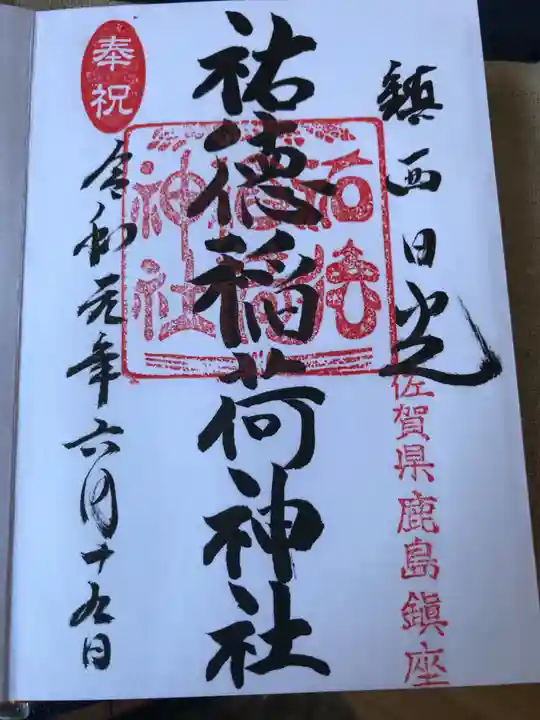 鎮西日光
佐賀県鹿島鎮座
祐徳稲荷神社
奉祝
令和元年六月十九日